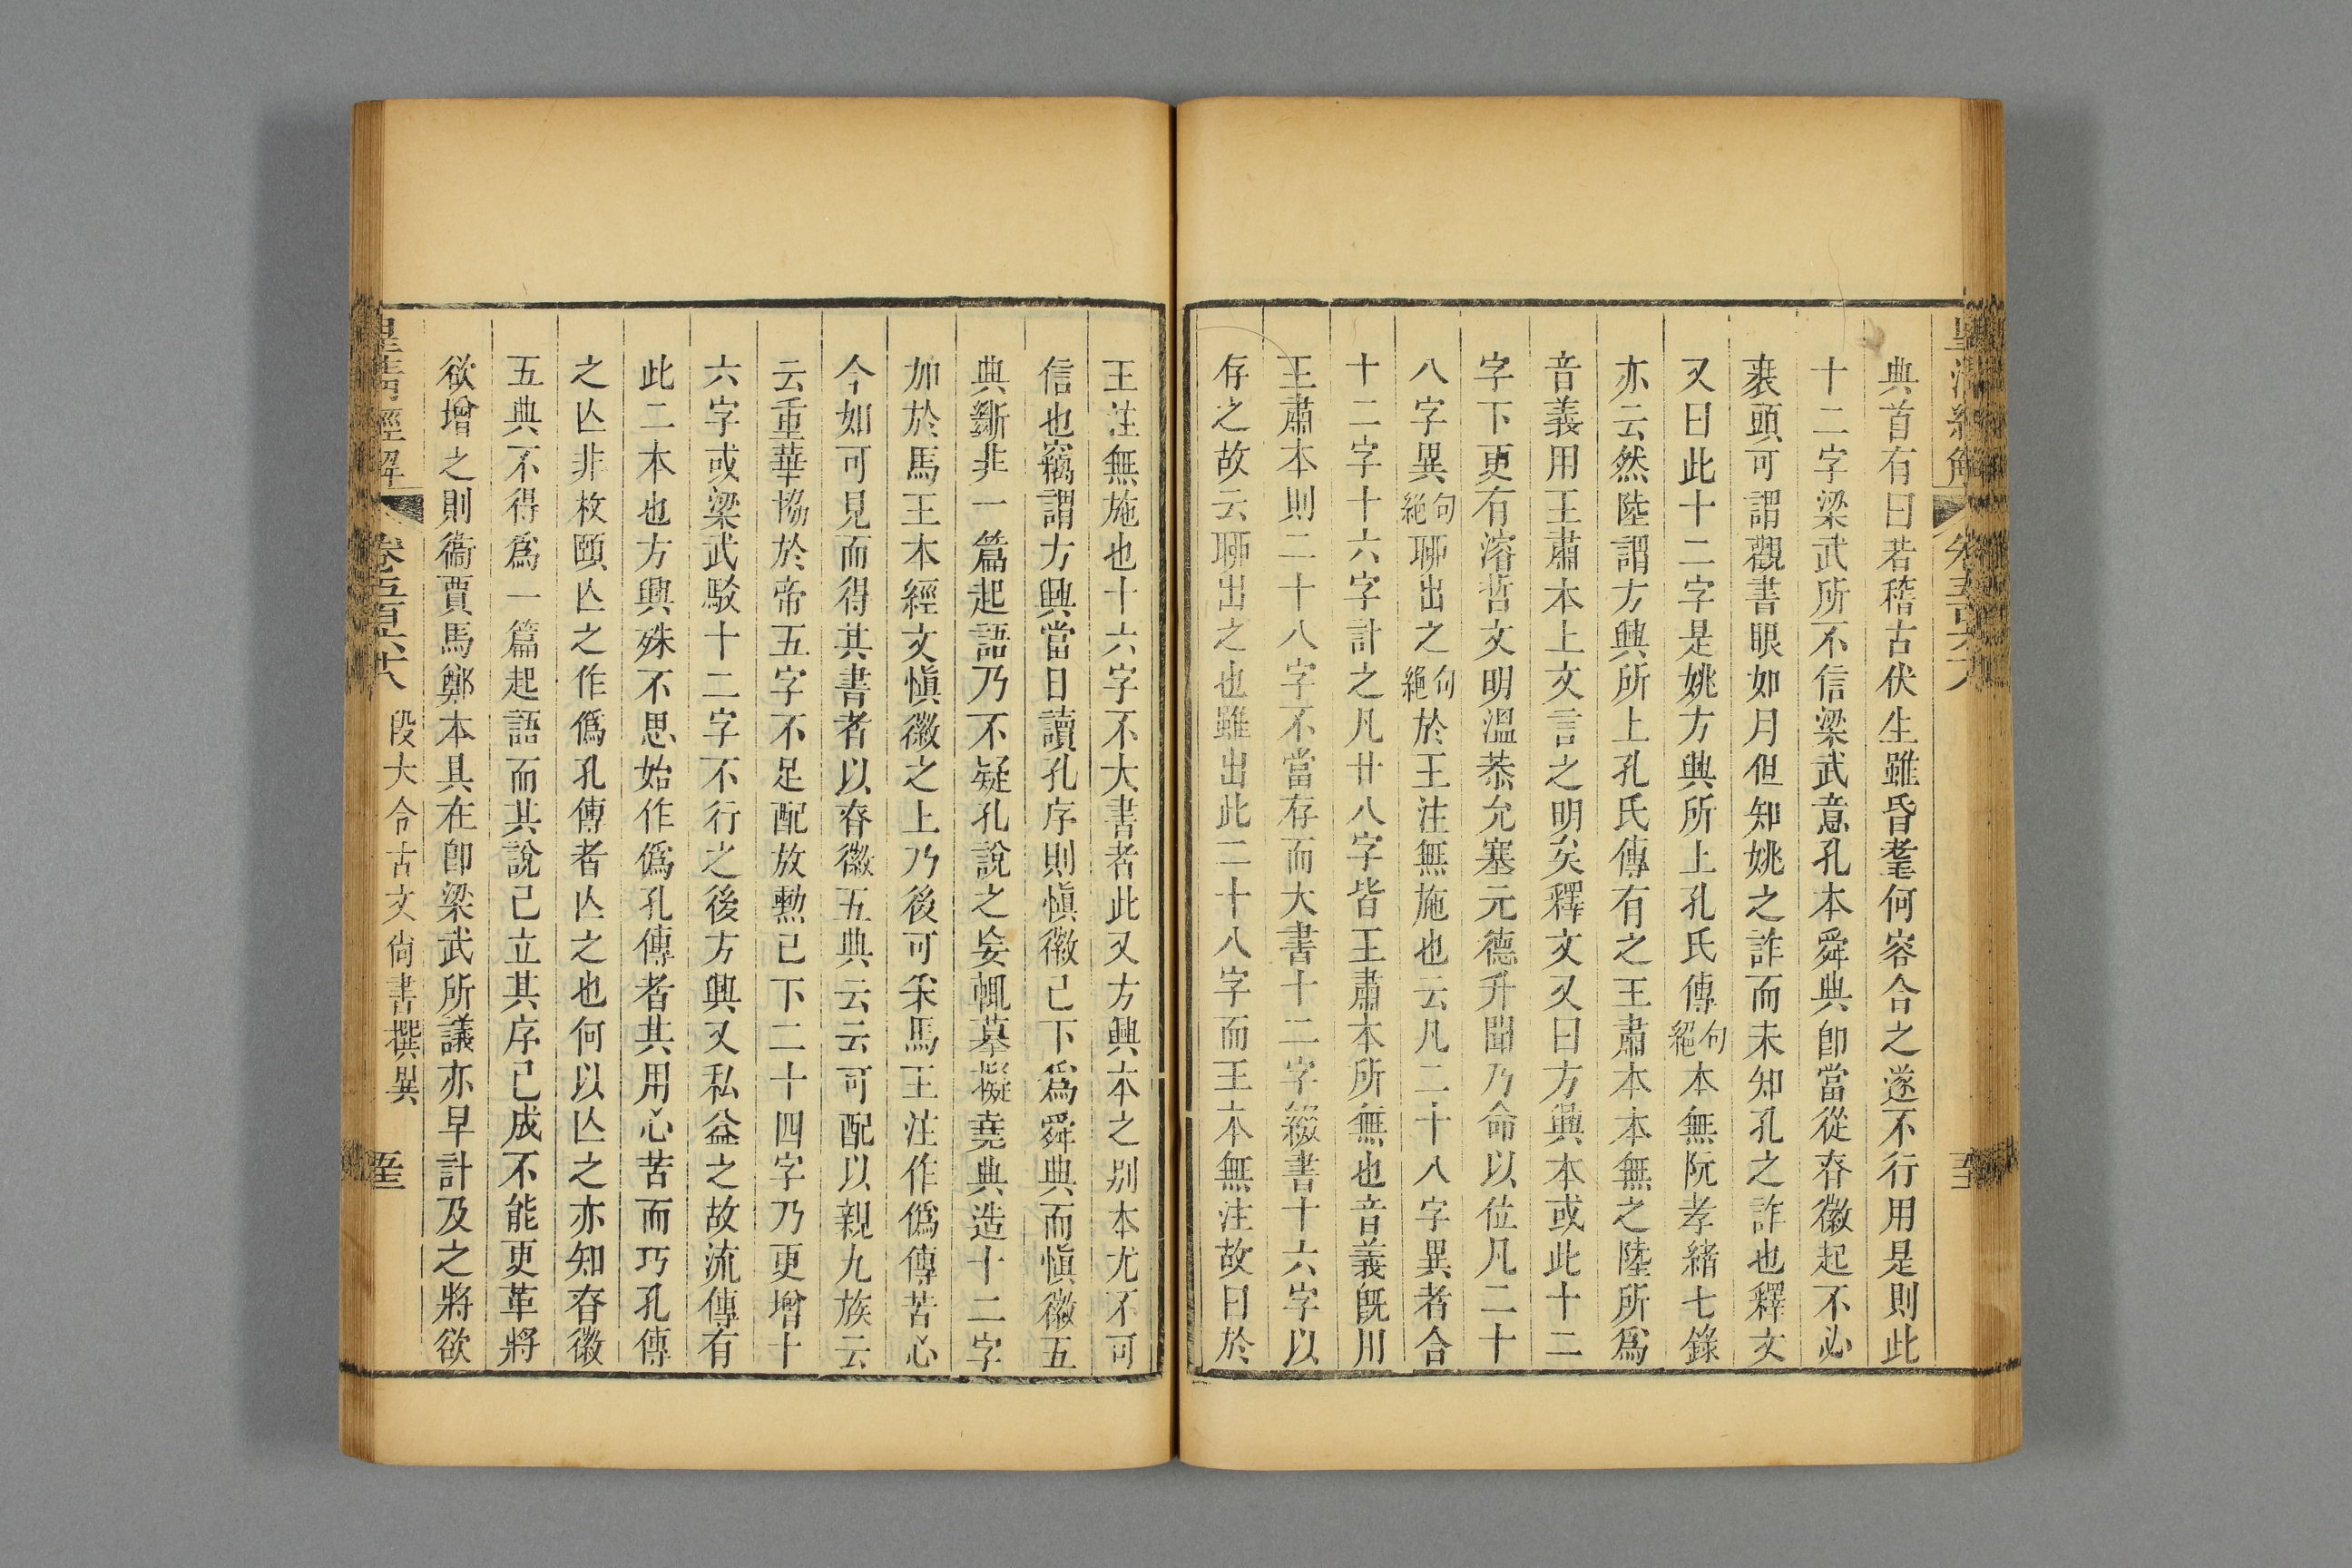 皇清經解 卷五百六十八 至
典首有曰若稽古伏生雖昏耄何容合之遂不行用是則此
十二字梁武所不信梁武意孔本舜典卽當從昚徽起不必
裴頭可謂觀書眼如月但知姚之詐而未知孔之詐也釋文
又曰此十二字是姚方興所上孔氏傳絕句本無阮孝緒七錄
亦云然陸謂方興所上孔氏傳有之王肅本本無之陸所爲
音義用王肅本上文言之明矣釋文又曰方興本或此十二
字下更有濬哲文明溫恭允塞元德升聞乃命以位凡二十
八字異絕句聊出之絕句於王注無施也云凡二十八字異者合
十二字十六字計之凡廿八字皆王肅本所無也音義旣用
王肅本則二十八字不當存而大書十二字綴書十六字以
存之故云聊出之也雖出此二十八字而王本無注故曰於
王注無施也十六字不大書者此又方興本之別本尤不可
信也竊謂方興當日讀孔序則愼徽已下爲舜典而愼徽五
典斷非一篇起語乃不疑孔說之妄輒摹擬堯典造十二字
加於馬王本經文愼徽之上乃後可采馬王注作僞傳苦心
今如可見而得其書者以昚徽五典云云可配以親九族云
云重華協於帝五字不足配放勲已下二十四字乃更增十
六字或梁武駁十二字不行之後方興又私益之故流傳有
此二本也方興殊不思始作僞孔傳者其用心苦而巧孔傳
之亾非枚頤亾之作僞孔傳者亾之也何以亾之亦知昚徽
五典不得爲一篇起語而其說已立其序已成不能更革將
欲增之則衞賈馬鄭本具在卽梁武所議亦早計及之將欲
皇淸經解 卷五百六十八 段大令古文尙書撰異 至